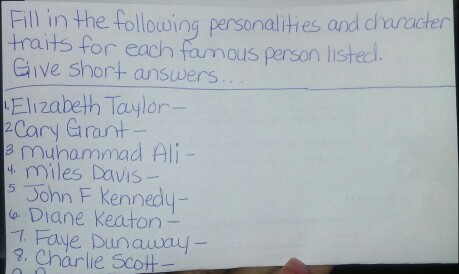 Fill in the following personalities and character
traits for each famous person listed.
Give short answers...
1. Elizabeth Taylor -
2 Cary Grant -
3 muhammad Ali -
4. miles Davis -
5 John F Kennedy -
6. Diane Keaton -
7. Faye Dunaway -
8. Charlie Scott -